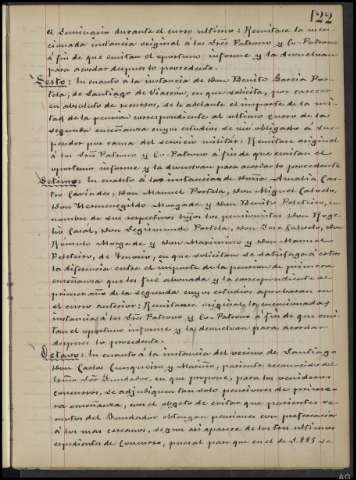 122
el Seminario durante el curso ultimo: Remítase la men-
cionada instancia original á los Sres Patrono y Co-Patrono
á fin de que emitan el oportuno informe y la devuelvan
para acordar despues lo procedente.
Sesto: En cuanto á la instancia de Don Benito Garcia Por-
tela, de Santiago de Viascón, en que solicita, por carecer
en absoluto de recursos, se le adelante el importe de la mi-
tad de la pension correspondiente al ultimo curso de la
segunda enseñanza cuyos estudios se vió obligado á sus-
pender por causa del servicio militar: Remítase original
á los Sres Patrono y Co-Patrono á fin de que emitan el
oportuno informe y la devuelvan para acordar lo procedente
Setimo: En cuanto á las instancias de Doña Amalia Cas-
tro Don Manuel Portela, Don Miguel Calvete,
Don Hermenegildo Morgade y Don Benito Peleteiro, en
nombre de sus respectivos hijos los pensionistas Don Roge-
lio Don Segismundo Portela, Don José Calvete, Don
Romulo Morgade y Don Maximino y Don Manuel
Peleteiro, de Tenorio, en que solicitan se satisfaga á estos
la diferencia entre el importe de la pension de primera
enseñanza que les fué abonada y la correspondiente al
primer año de la segunda cuyos estudios aprobaron en
el curso anterior: Remítanse originales las mencionadas
instancias á los Sres Patrono y Co-Patrono á fin de que emi-
tan el oportuno informe y la devuelvan para acordar
despues lo procedente.
Octavo: En cuanto á la instancia del vecino de Santiago
Don Carlos Cunqueiro y Mariño, pariente reconocido del
Señor Fundador, en que propone, para los venideros
concursos, se adjudiquen tan solo pensiones de prime-
ra enseñanza, con el objeto de evitar que parientes re-
motos del Fundador obtengan pensiones con preferencia
á los mas cercanos, segun así aparece de los tres ultimos
espedientes de Concurso, puesto que en el de 1.885 se
AG